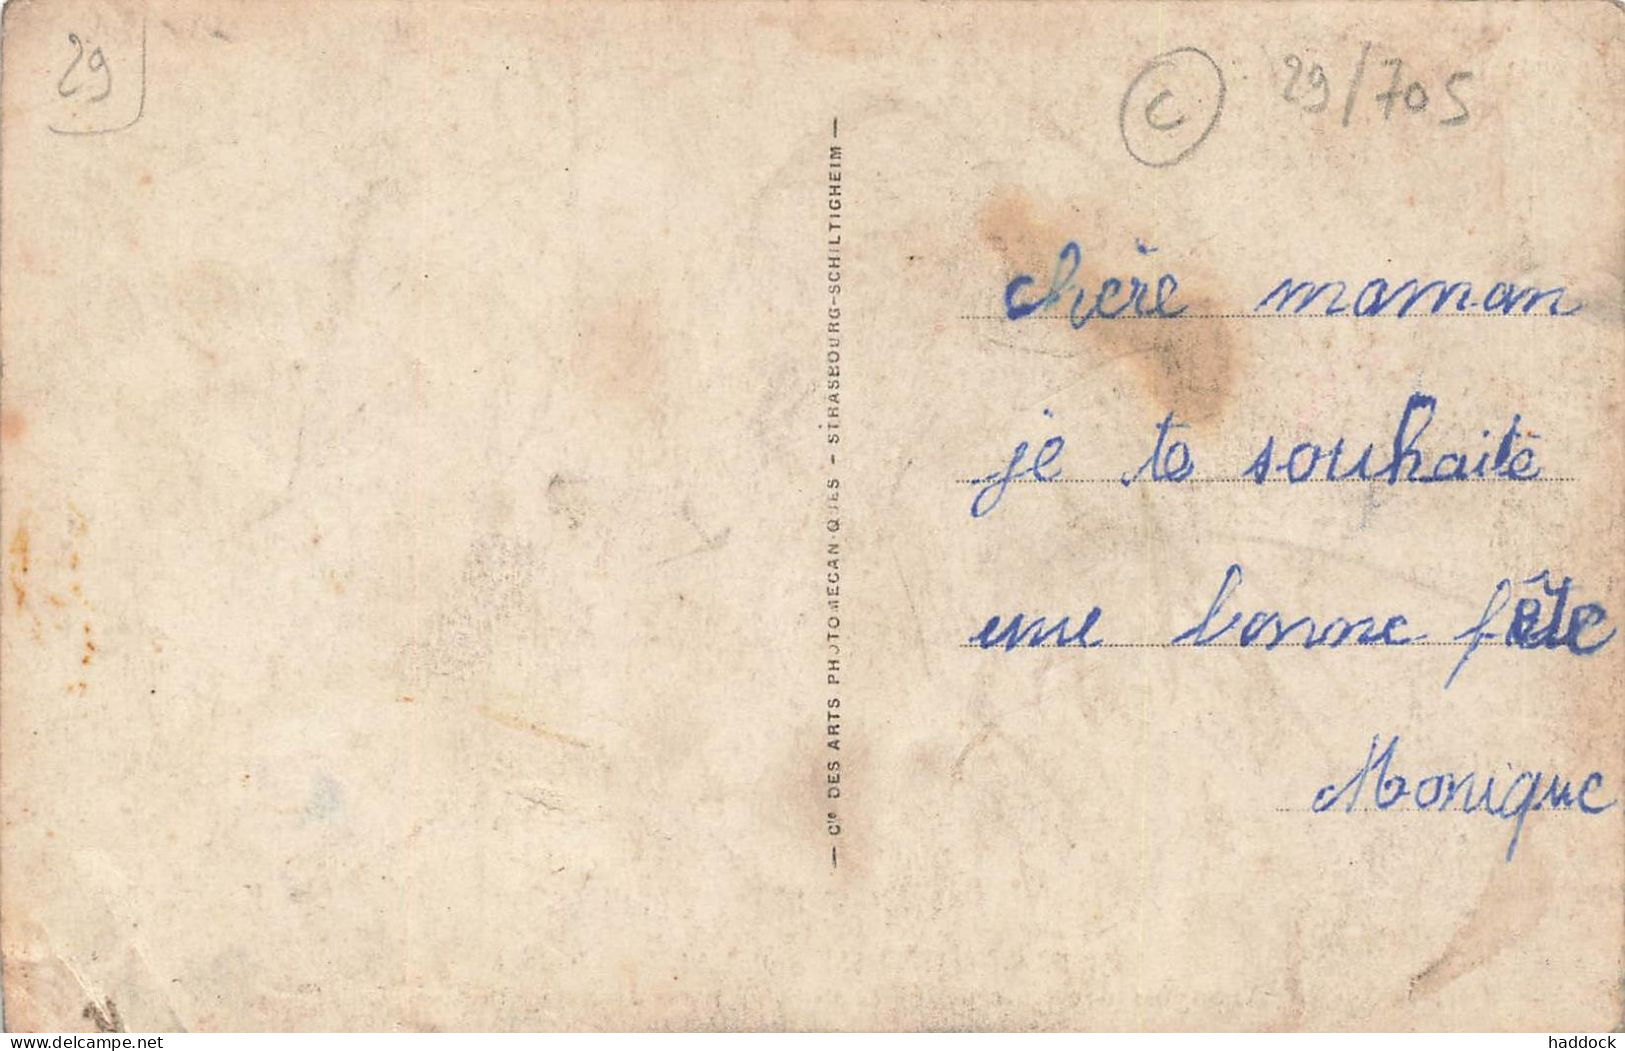 29
C 29/705
— Cie DES ARTS PHOTOMECANIQUES - STRASBOURG-SCHILTIGHEIM —
chère maman
je te souhaite
une bonne fête
Monique
www.delcampe.net
haddock